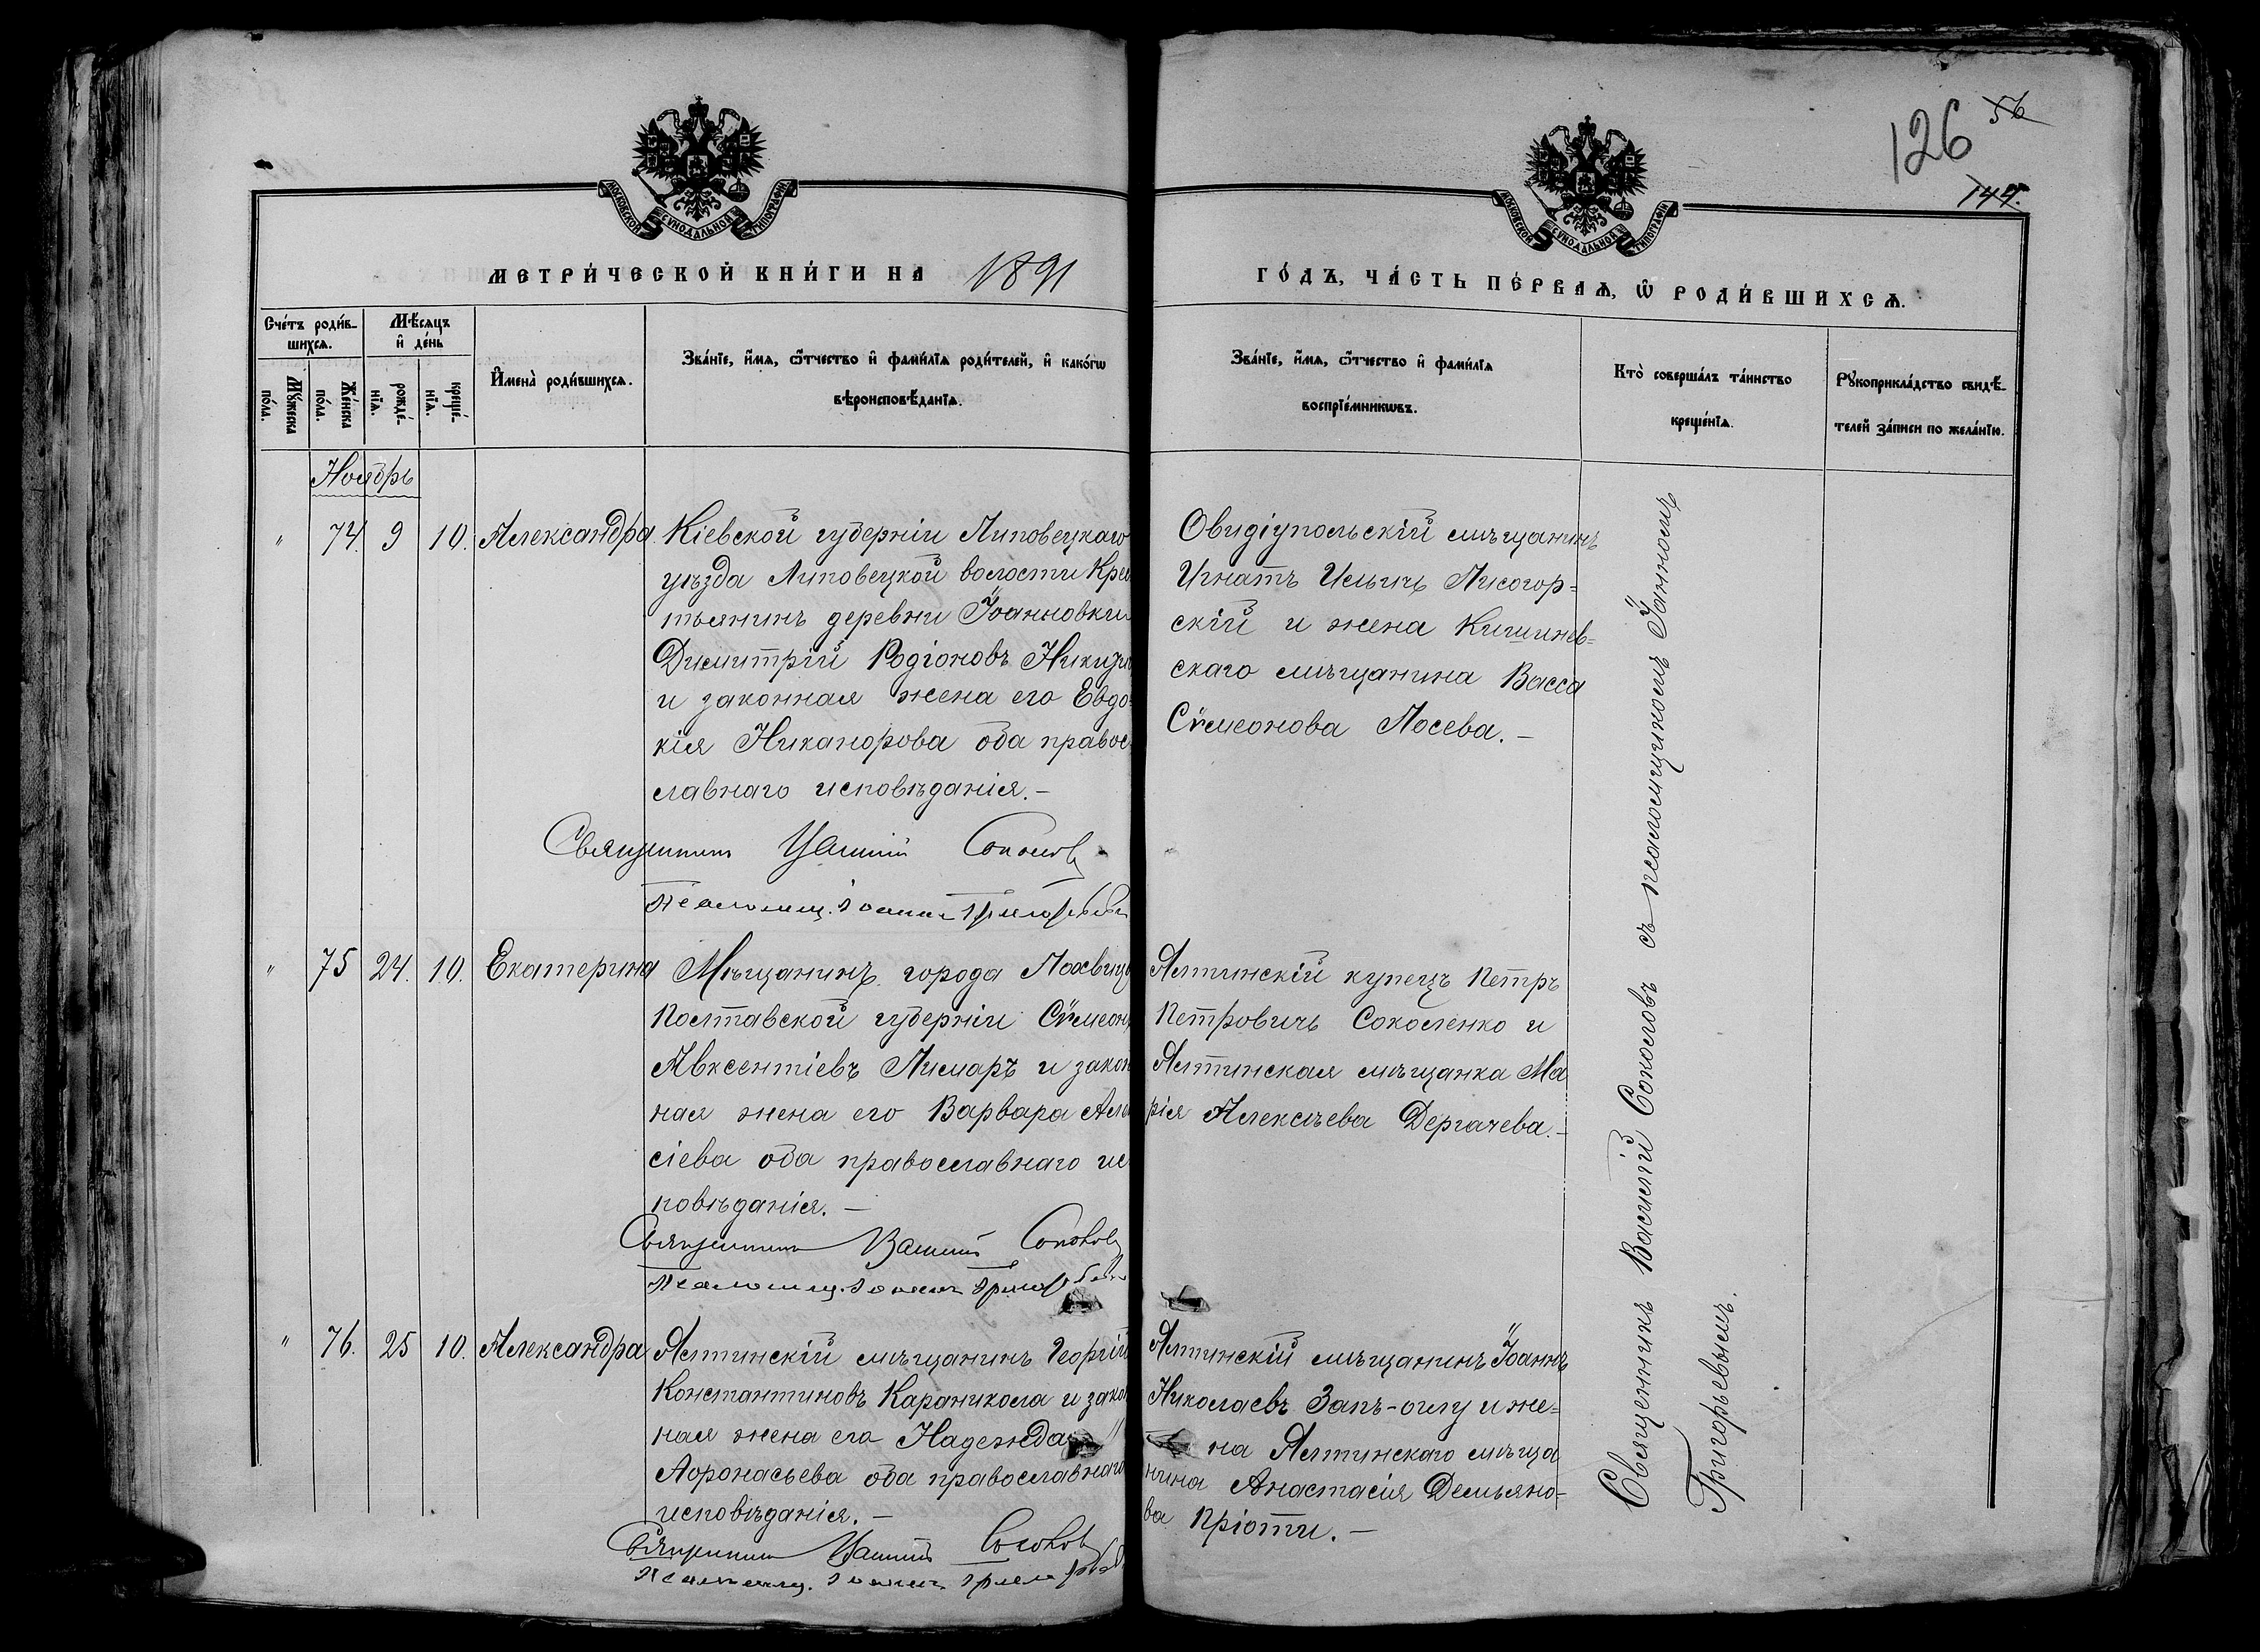 126 56
144.
МОСКОВСКОЙ СУНОДАЛЬНОЙ ТИПОГРАФІИ
МОСКОВСКОЙ СУНОДАЛЬНОЙ ТИПОГРАФІИ
МЕТРИ́ЧЕСКОЙ КНИ́ГИ НА 1891
ГО́ДЪ, ЧА́СТЬ ПЕ́РВАѦ, Ѡ҆ РОДИ́ВШИХСѦ.
Сче́тъ роди́в-
шихсѧ.
Мꙋ́жеска
по́ла.
Же́нска
по́ла.
Мѣ́сѧцъ
и҆ де́нь
рожде́-
нїѧ.
креще́-
нїѧ.
И҆мена̀ роди́вшихсѧ.
Зва́нїе, и҆́мѧ, ѻ҆́тчество и҆ фами́лїѧ роди́телей, и҆ како́гѡ
вѣроисповѣ́данїѧ.
Зва́нїе, и҆́мѧ, ѻ҆́тчество и҆ фами́лїѧ
воспрїе́мникѡвъ.
Кто̀ соверша́лъ та́инство
креще́нїѧ.
Рꙋкоприкла́дство свидѣ́-
телей за́писи по жела́нїю.
Ноябрь
" 74. 9 10. Александра.
Кіевской губерніи Липовецкаго
уѣзда Липовецкой волости Крес
тьянинъ деревни Іоанновки
Димитрій Родіоновъ
и законная жена его Евдо-
кія Никанорова оба правос
славнаго исповѣданія.—
Священникъ Василій Соколовъ
Псаломщ. Іоаннъ Григорьевъ
Овидіупольскій мѣщанинъ
Игнатъ Ильичъ Лисогор=
скій и жена Кишинев=
скаго мѣщанина Васса
Сѵмеонова Лосева.—
" 75 24. 10. Екатерина
Мѣщанинъ города Лохвицы
Полтавской губерніи Сѵмеонъ
Авксентіевъ Лимаръ и закон
ная жена его Варвара Але
сіева оба православнаго ис
повѣданія.—
Священникъ Василій Соколовъ
Псаломщ. Іоаннъ Григорьевъ
Ялтинскій купецъ Петръ
Петровичъ Соколенко и
Ялтинская мѣщанка Ма
рія Алексѣева Дергачева.—
" 76. 25 10. Александра
Ялтинскій мѣщанинъ Георгій
Константиновъ Караникола и закон
ная жена его Надежда
Афонасьева оба православнаго
исповѣданія.—
Священникъ Василій Соколовъ
Псаломщ. Іоаннъ Григорьевъ
Ялтинскій мѣщанинъ Іоаннъ
Николаевъ Запъ-оглу и же=
на Ялтинскаго мѣща
нина Анастасія Демьяно-
ва Пріоти.—
Священникъ Василій Соколовъ съ псаломщикомъ Іанномъ
Григорьевымъ.